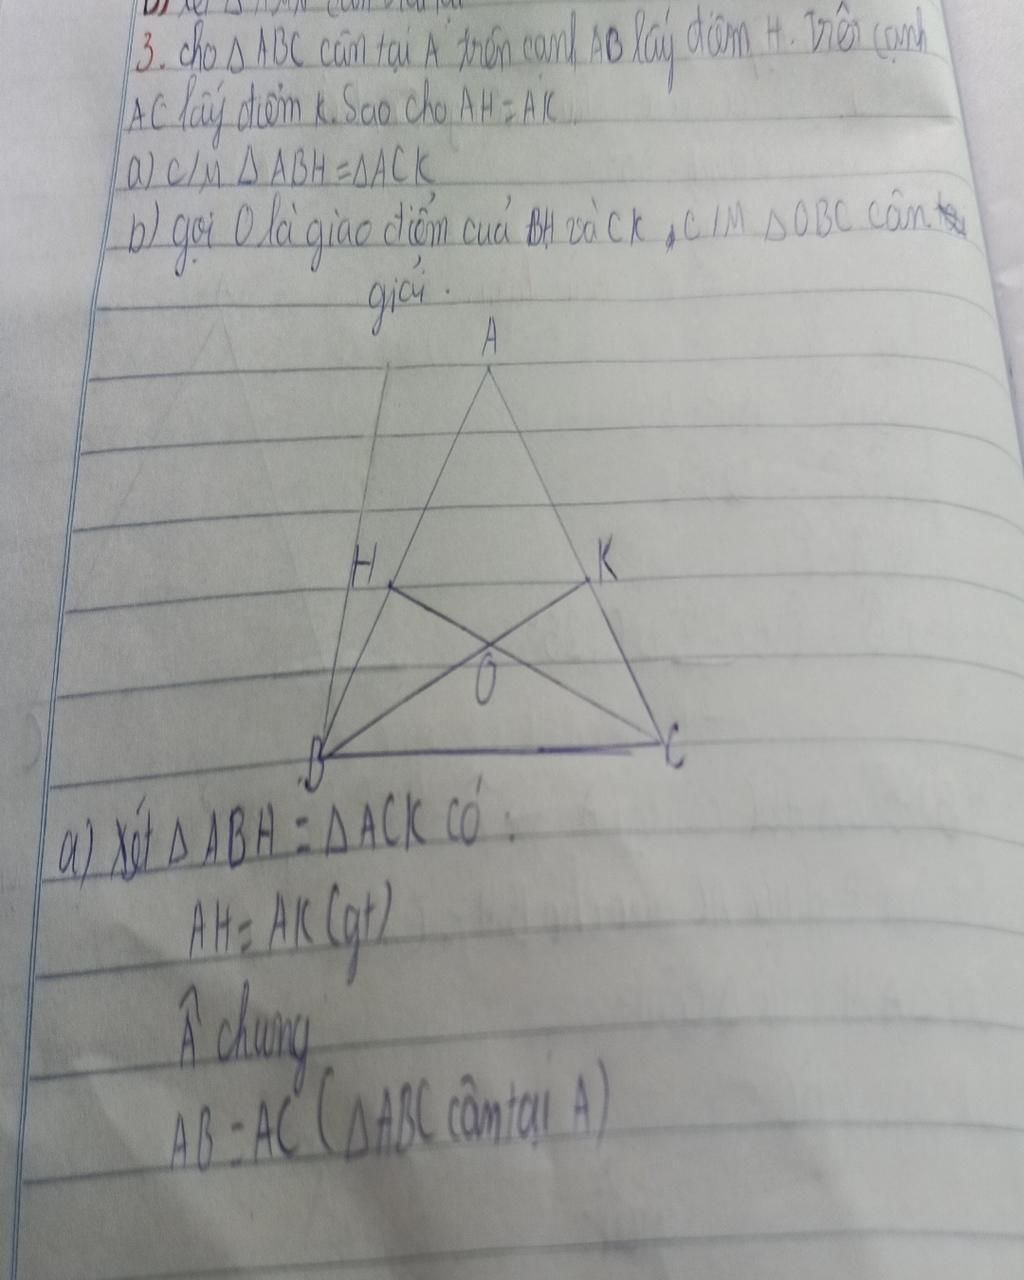 3. cho Δ ABC cân tại A trên cạnh AB lấy điểm H. Trên cạnh
AC lấy điểm K. Sao cho AH = AK.
a) C/M Δ ABH = ΔACK
b) gọi O là giao điểm của BH và CK, C/M ΔOBC cân
giải.
A
H
K
O
B
C
a) Xét Δ ABH = Δ ACK có :
AH = AK (gt)
Â chung
AB = AC (ΔABC cân tại A)